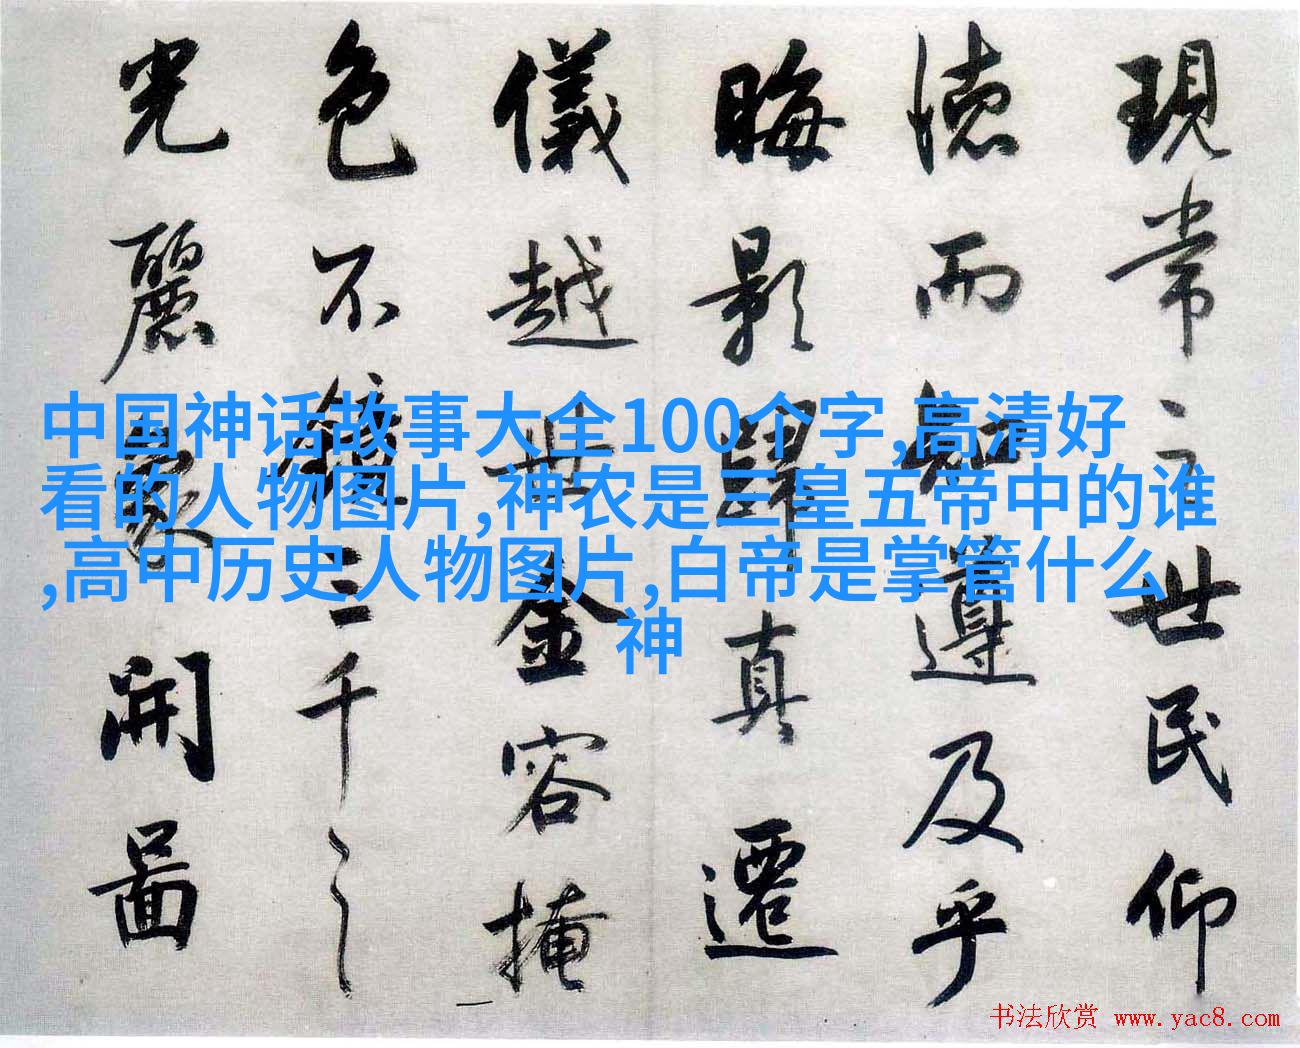 現常之世民仰
德而知遵及乎
晦影歸真遷
儀越世金容掩
色不鏡三千之
光麗象開圖
中国神话故事大全100个字,高清好
看的人物图片,神农是三皇五帝中的谁
,高中历史人物图片,白帝是掌管什么
神
书法欣赏 www.yac8.com